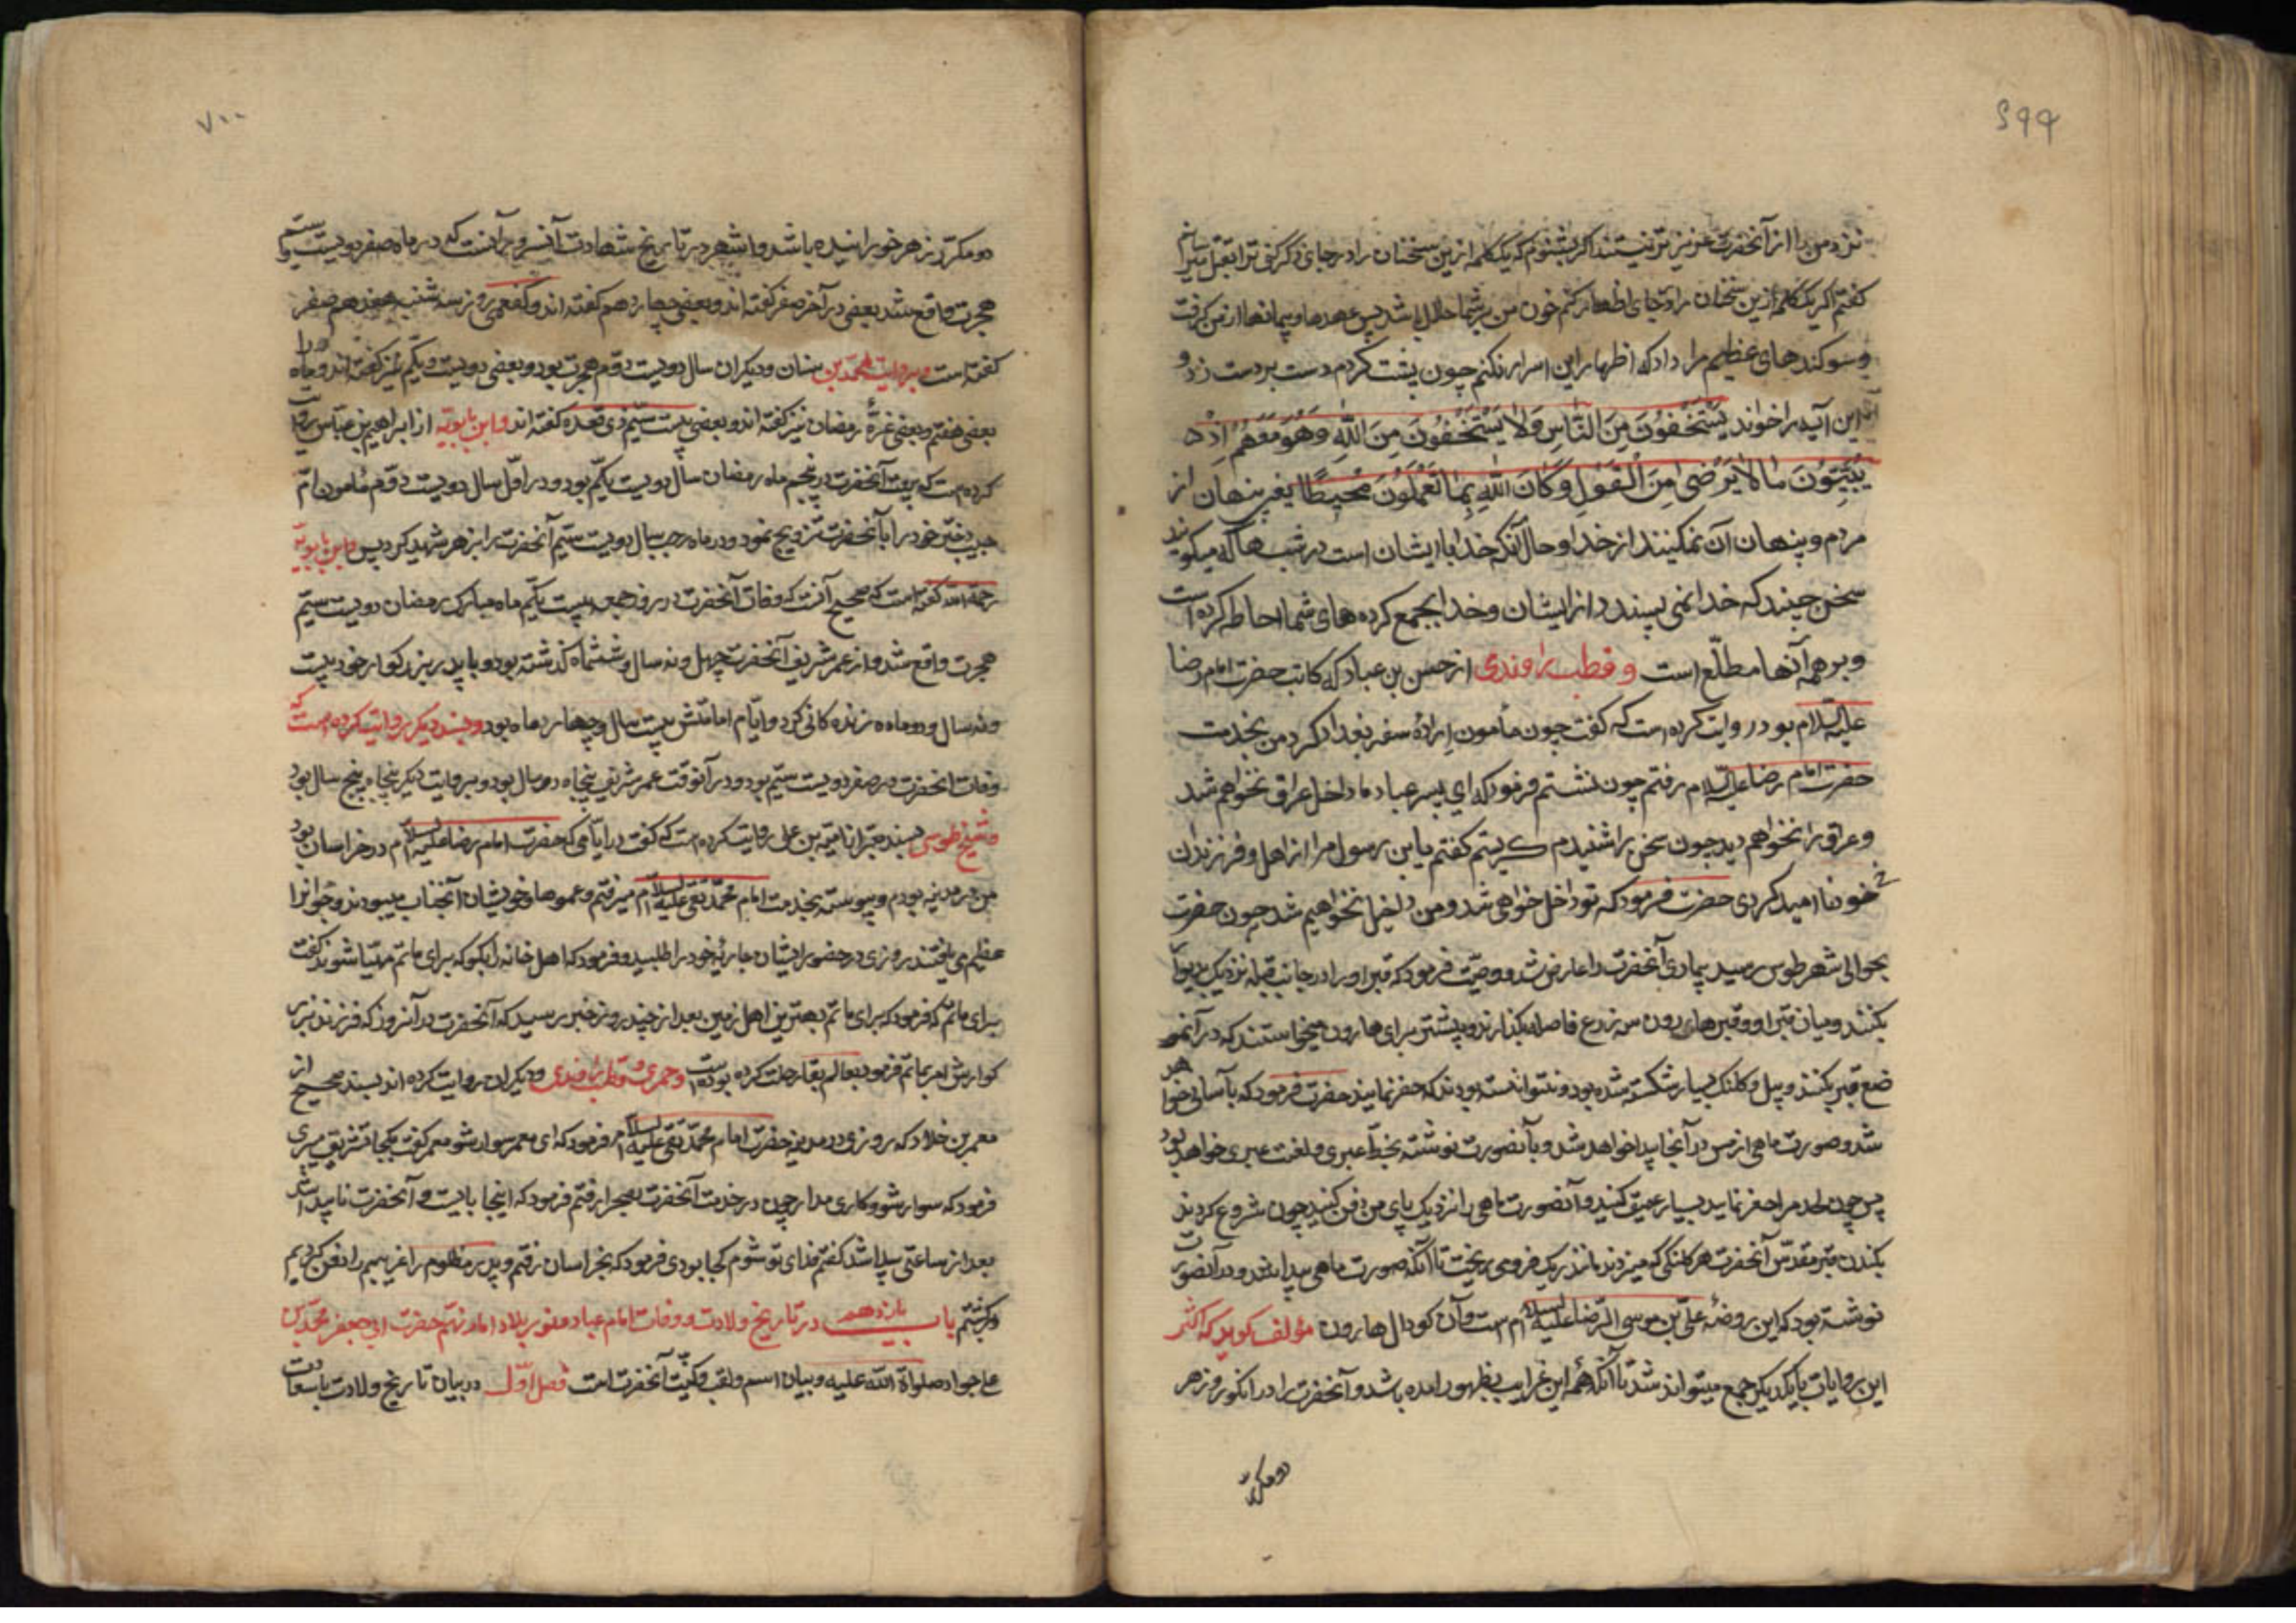 ۶۹۹
نزد من را از آنحضرت عزیزتر نیستند اگر بشنوم که یک کلمه ازین سخنان را در جای دگر گفتی ترا بقتل میرسانم
گفتم اگر یک کلمه ازین سخنان را در جای اظهار کنم خون من بر شما حلال باشد پس عهدها و پیمانها از من گرفت
و سوگندهای عظیم مرا داد که اظهار این اسرار نکنم چون پشت کردم دست بر دست زد و
این آیه را خواند یَسْتَخْفُونَ مِنَ النَّاسِ وَلَا یَسْتَخْفُونَ مِنَ اللَّهِ وَهُوَ مَعَهُمْ اِذْ
یُبَیِّتُونَ مَا لَا یَرْضٰی مِنَ الْقَوْلِ وَکَانَ اللَّهُ بِمَا تَعْمَلُونَ مُحِیطًا یعنی پنهان از
مردم و پنهان آن نمیکنند از خدا و حال آنکه خدا با ایشان است در شبها که میگویند
سخنی چند که خدا نمی پسندد از ایشان و خدا بجمع کرده های شما احاطه کرده است
و بر همه آنها مطلّع است و قطب راوندی از حسن بن عباد که کاتب حضرت امام رضا
علیه السلام بود روایت کرده است که گفت چون مأمون ارادهٔ سفر بغداد کرد من بخدمت
حضرت امام رضا علیه السلام رفتم چون نشستم فرمود که ای پسر عباد ما داخل عراق نخواهم شد
و عراق را نخواهم دید چون سخن را شنیدم گریستم گفتم یابن رسول مرا از اهل و فرزندان
خود نا امید کردی حضرت فرمود که تو داخل خواهی شد و من داخل نخواهیم شد چون حضرت
بحوالی شهر طوس رسید بیماری آنحضرت را عارض شد و وصیّت فرمود که قبر او را در جانب قبله نزدیک بدیوار
بکنند و میان قبر او و قبر هارون سه زرع فاصله بگذارند و پیشتر برای هارون میخواستند که در آنمو
ضع قبر بکنند و بیل و کلنگ بسیار شکسته شده بود و نتوانسته بودند که حفر نمایند حضرت فرمود که بآسانی خواهد
شد و صورت ماهی از مس در آنجا پیدا خواهد شد و بآنصورت نوشته بخطّ عبری و لغت عبری خواهد بود
پس چون لحد مرا حفر نماید بسیار عمیق کنید و آنصورت ماهی را نزدیک پای من دفن کنید چون شروع کردند
بکندن قبر مقدّس آنحضرت هر کلنگی که میزدند مانند ریک فرو می ریخت تا آنکه صورت ماهی پیدا شد و در آنصورت
نوشته بود که این روضهٔ علیّ بن موسی الرّضا علیه السلام است و آن گودال هارون مؤلف گوید که اکثر
این روایات با یکدیگر جمع میتواند شد تا آنکه همه این غرایب بظهور امده باشد و آنحضرت را در انگور و زهر
دو مکرّر
۷۰۰
دو مکرّر زهر خورانیده باشد و اشهر در تاریخ شهادت آنسرور آنست که در ماه صفر دویست و سیّم
هجرت واقع شد بعضی در آخر صفر گفته اند و بعضی چهاردهم گفته اند و کفعمی روز سه شنبه هفدهم صفر
گفته است و بروایت محمّد بن سنان و دیگران سال دویست دوّم هجرت بود و بعضی دویست و یکم نیز گفته اند و ماه را
بعضی هفتم و بعضی غرّهٔ رمضان نیز گفته اند و بعضی بیست سیّم ذی قعده گفته اند و ابن بابویّه از ابراهیم بن عبّاس روایت
کرده است که بیعت آنحضرت در پنجم ماه رمضان سال دویست یکم بود و در اوّل سال دویست دوّم مأمون امّ
حبیب دختر خود را با آنحضرت تزویج نمود و در ماه رجب سال دویست سیّم آنحضرت را بزهر شهید کرد پس ابن بابویه
رحمة الله گفته است که صحیح آنست که وفات آنحضرت در روز جمعه بیست یکّم ماه مبارک رمضان دویست سیّم
هجرت واقع شد و از عمر شریف آنحضرت چهل و نه سال و ششماه گذشته بود و با پدر بزرگوار خود بیست
و نه سال و دو ماه زنده کانی کرد و ایّام امامتش بیست سال و چهار ماه بود و بسند دیگر روایت کرده است که
وفات انحضرت در صفر دویست سیّم بود و در آنوقت عمر شریف پنجاه دو سال بود و بروایت دیگر پنجاه پنج سال بود
و شیخ طوسی بسند معتبر از امیّه بن علی روایت کرده است که گفت در ایّامی که حضرت امام رضا علیه السلام در خراسان بود
من در مدینه بودم و پیوسته بخدمت امام محمّد تقی علیه السلام میرفتم و عموها و خویشان آنجناب میبودند و جوانرا
عظیم می یافتند روزی در حضور ایشان جاریهٔ خود را طلبید و فرمود که اهل خانه را بگو که برای ماتم مهیّا شوند گفت
برای ماتم که فرمود که برای ماتم بهترین اهل زمین بعد از چند روز خبر رسید که آنحضرت در آنروز که فرزند بزر
گوارش امر بماتم فرمود بعالم بقا رحلت کرده بوده است و حمیری و قطب راوندی و دیگران روایت کرده اند بسند صحیح از
معمر بن خلاد که روزی در مدینه حضرت امام محمّد تقی علیه السلام فرمود که ای معمر سوار شو معمر گفت بکجا تشریف میبری
فرمود که سوار شو و کاری مدار چون در خدمت آنحضرت بصحرا رفتم فرمود که اینجا بایست و آنحضرت ناپیدا شد
بعد از ساعتی پیدا شد گفتم فدای تو شوم کجا بودی فرمود که بخراسان رفتم و پدر مظلوم را غریبم را دفن کردیم
و برگشتم باب یازدهم در تاریخ ولادت و وفات امام عباد و نور بلاد امام نهم حضرت ابی جعفر محمّد بن
علی جواد صلوات الله علیه و بیان اسم و لقب و کنیّت آنحضرت است فصل اوّل در بیان تاریخ ولادت با سعادت